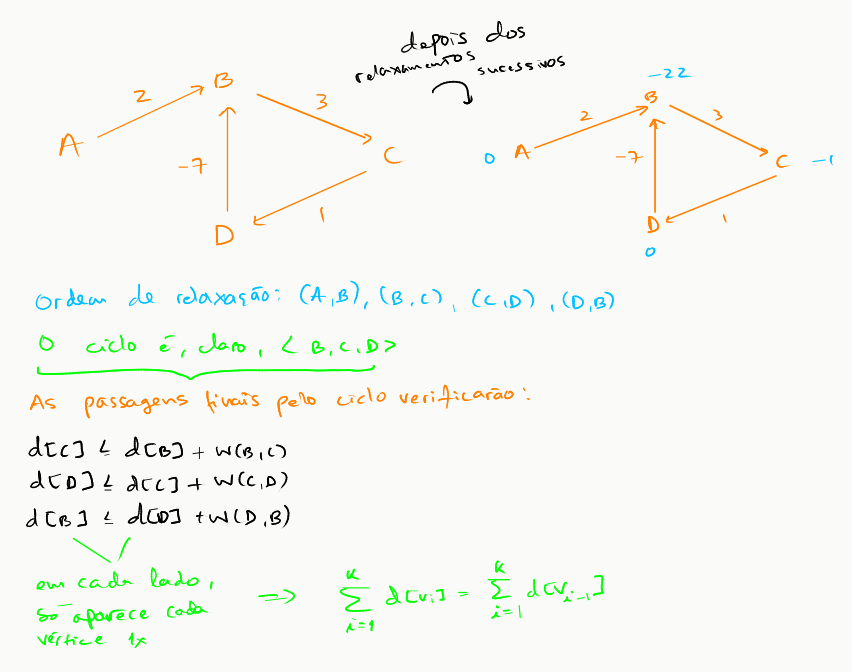 depois dos
relaxamentos
sucessivos
A
2
B
3
C
-7
1
D
-22
0 A
2
B
3
C -1
-7
1
D
0
Ordem de relaxação: (A,B), (B,C), (C,D), (D,B)
O ciclo é, claro, < B, C, D >
As passagens finais pelo ciclo verificarão:
d[C] ≤ d[B] + w(B,C)
d[D] ≤ d[C] + w(C,D)
d[B] ≤ d[D] + w(D,B)
em cada lado,
só aparece cada
vértice 1x
=> ∑_{i=1}^{k} d[v_i] = ∑_{i=1}^{k} d[v_{i-1}]